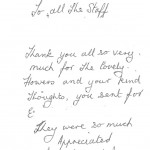 To all the Staff
Thank you all so very
much for the lovely
flowers and your kind
thoughts, you sent for
E
They were so much
Appreciated